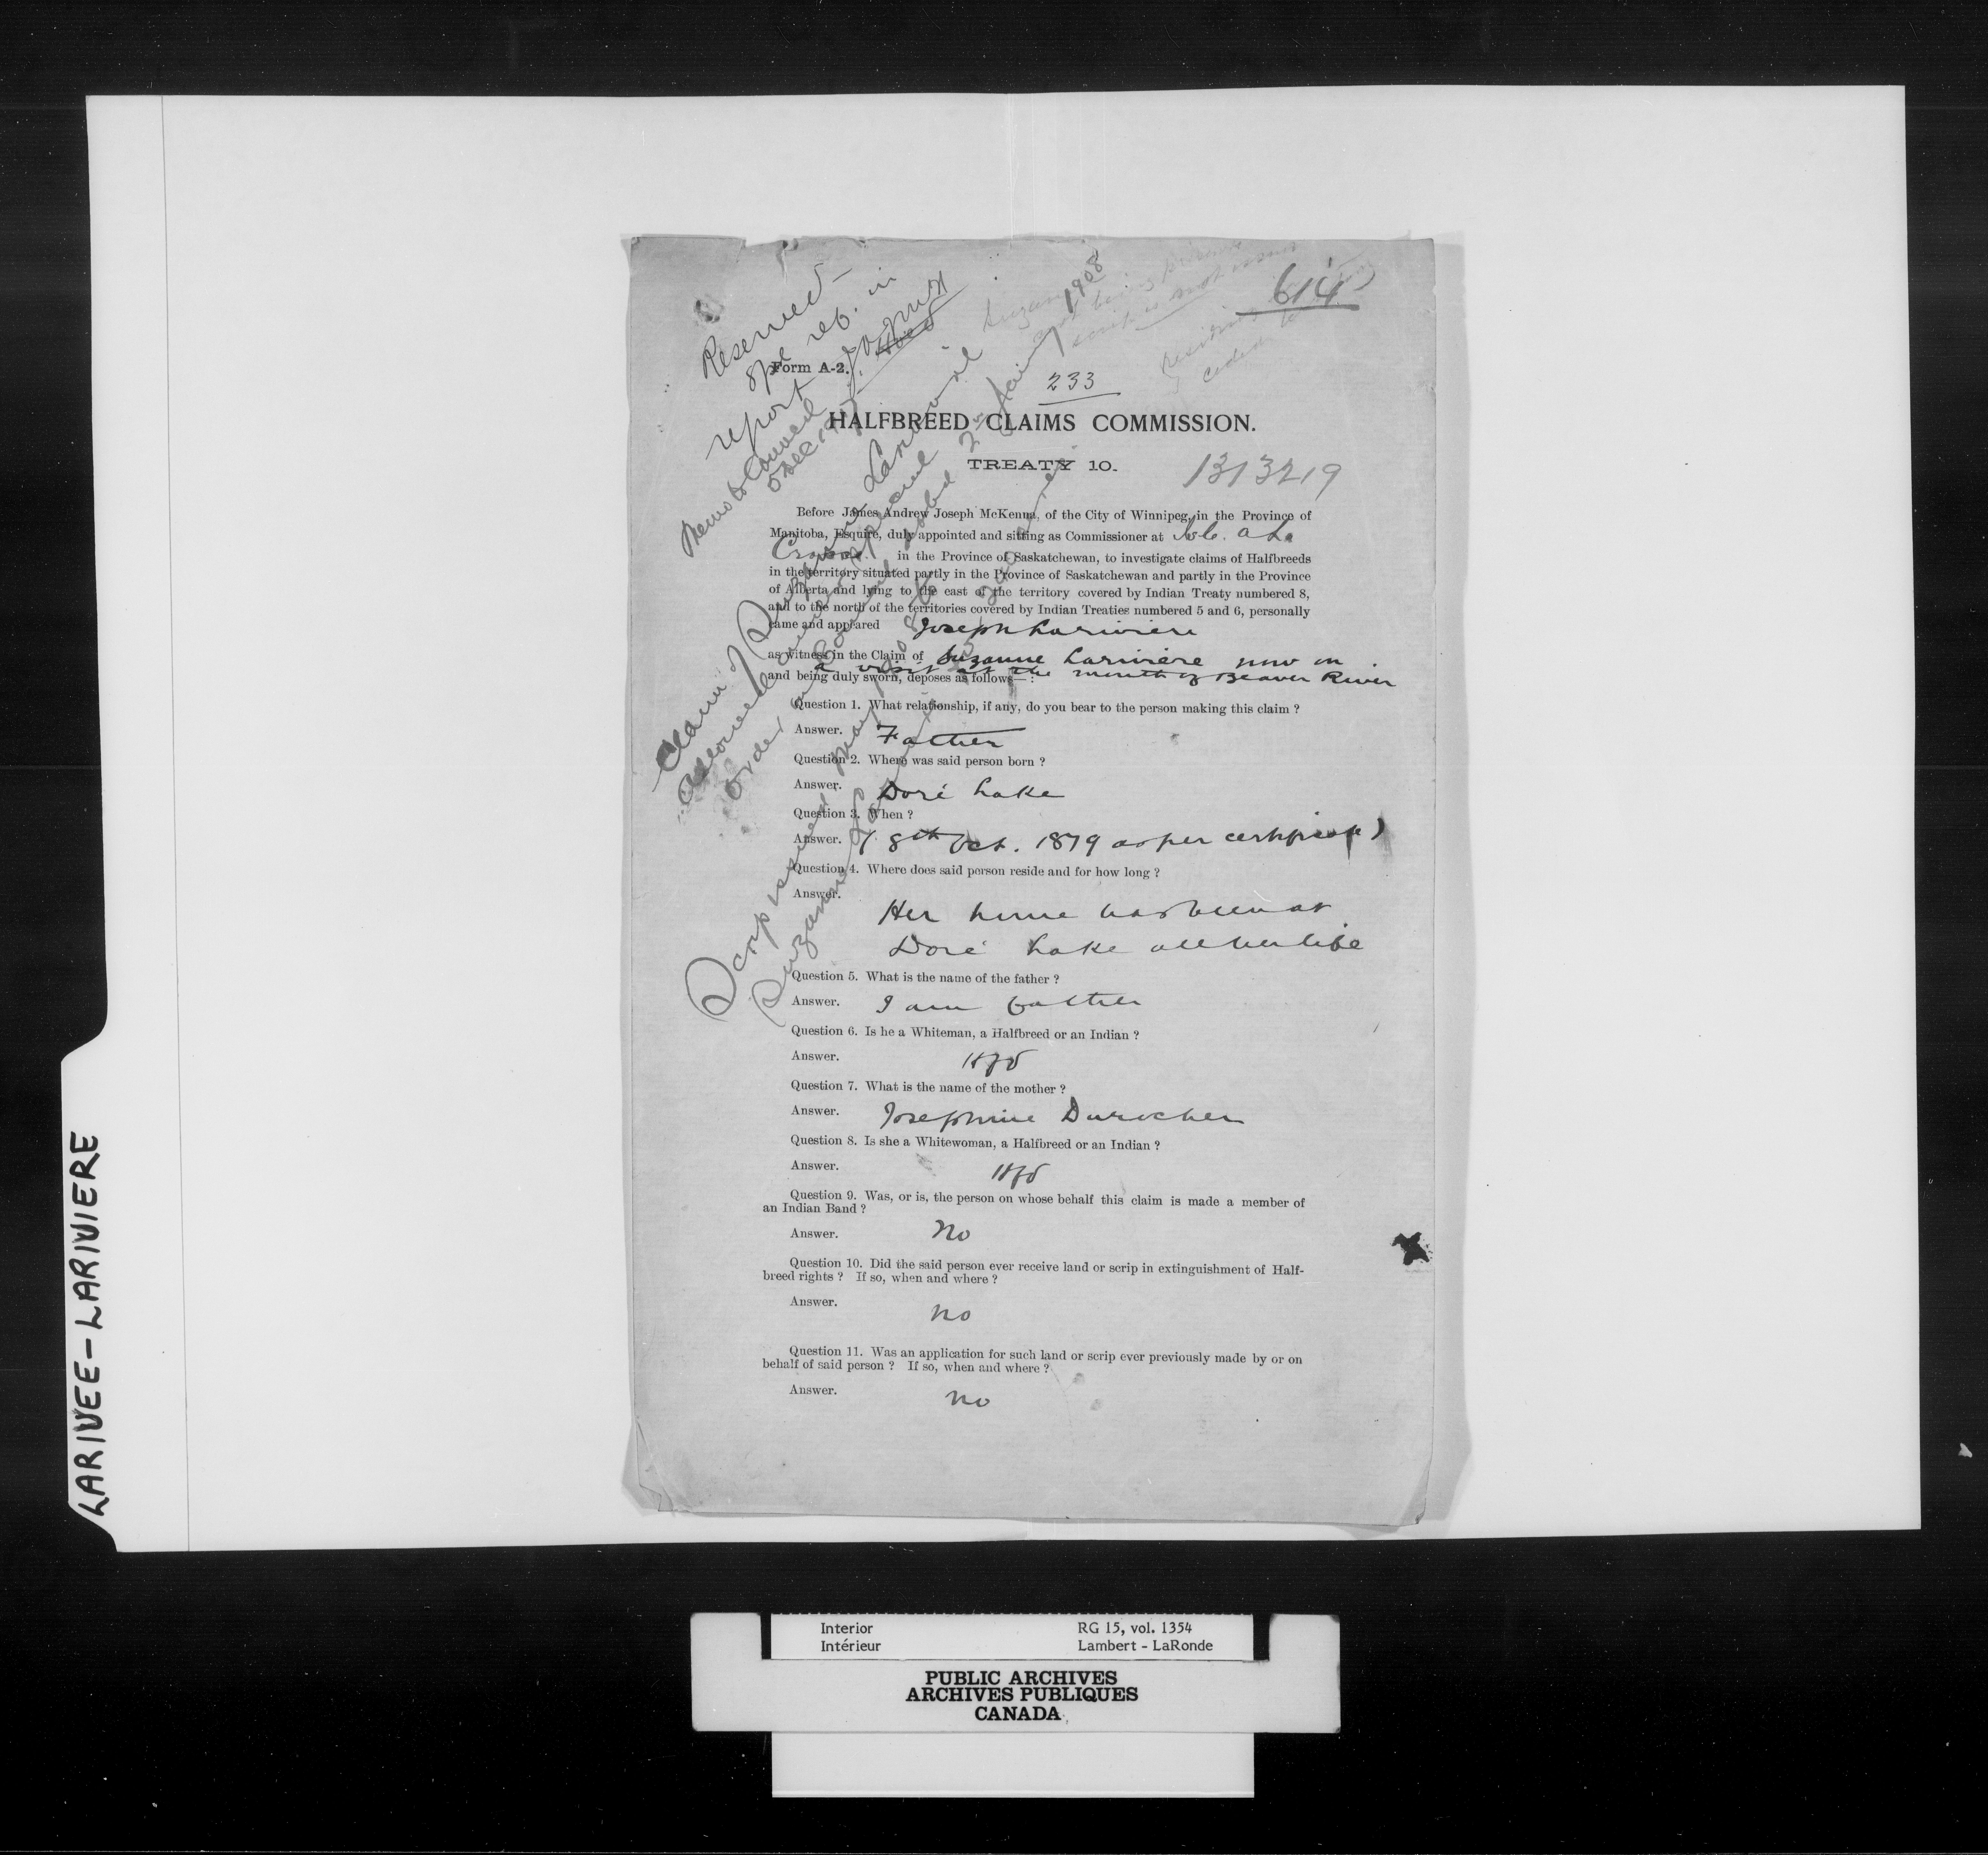 614
Reserved
spe rep. in
report
J.A.J. McK
Memo to Council
5 Dec 1907
Claim of Suzanne Larivière
allowed
Order in Council dated 2nd January 1908
Scrip issued
Suzanne
Form A-2.
233
HALFBREED CLAIMS COMMISSION.
TREATY 10.
1313219
Before James Andrew Joseph McKenna, of the City of Winnipeg, in the Province of
Manitoba, Esquire, duly appointed and sitting as Commissioner at Ile. a La
Crosse in the Province of Saskatchewan, to investigate claims of Halfbreeds
in the territory situated partly in the Province of Saskatchewan and partly in the Province
of Alberta and lying to the east of the territory covered by Indian Treaty numbered 8,
and to the north of the territories covered by Indian Treaties numbered 5 and 6, personally
came and appeared Joseph Lariviere
as witness in the Claim of Suzanne Lariviere now on
a visit at the mouth of Beaver River
and being duly sworn, deposes as follows—:
Question 1. What relationship, if any, do you bear to the person making this claim ?
Answer. Father
Question 2. Where was said person born ?
Answer. Doré Lake
Question 3. When ?
Answer. ( 8th Oct. 1879 as per certificate )
Question 4. Where does said person reside and for how long ?
Answer.
Her home has been at
Doré Lake all her life
Question 5. What is the name of the father ?
Answer. I am father
Question 6. Is he a Whiteman, a Halfbreed or an Indian ?
Answer. Hfd
Question 7. What is the name of the mother ?
Answer. Josephine Durocher
Question 8. Is she a Whitewoman, a Halfbreed or an Indian ?
Answer. Hfd
Question 9. Was, or is, the person on whose behalf this claim is made a member of
an Indian Band ?
Answer. No
Question 10. Did the said person ever receive land or scrip in extinguishment of Half-
breed rights ? If so, when and where ?
Answer. No
Question 11. Was an application for such land or scrip ever previously made by or on
behalf of said person ? If so, when and where ?
Answer. No
LARIVEE-LARIVIERE
Interior RG 15, vol. 1354
Intérieur Lambert - LaRonde
PUBLIC ARCHIVES
ARCHIVES PUBLIQUES
CANADA